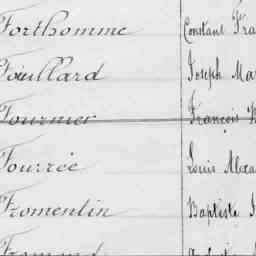 Forthomme Constant Fra
Fouillard Joseph Mar
Fournier François
Fourrée Louis Alexa
Fromentin Baptiste